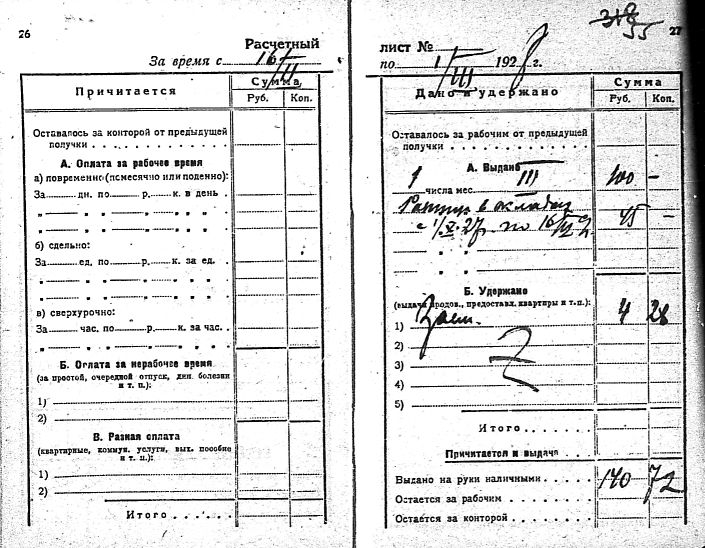 26
Расчетный
За время с 16/III
Причитается
Сумма
Руб. Коп.
Оставалось за конторой от предыдущей
получки
А. Оплата за рабочее время
а) повременно (помесячно или поденно):
За дн. по р. к. в день
" " " " "
" " " " "
б) сдельно:
За ед. по р. к. за ед.
" " " " "
" " " " "
в) сверхурочно:
За час. по р. к. за час.
" " " " "
Б. Оплата за нерабочее время
(за простой, очередной отпуск, дни болезни
и т. п.):
1)
2)
В. Разная оплата
(квартирные, коммун. услуги, вых. пособие
и т. п.):
1)
2)
Итого
55
27
лист №
по 1/III 1928 г.
Дано и удержано
Сумма
Руб. Коп.
Оставалось за рабочим от предыдущей
получки
А. Выдано
1 числа мес. III 100 —
в окладах 45 —
с 1/X 27 г. по 16/
" "
" "
Б. Удержано
(выдача продов., предоставл. квартиры и т. п.):
1) Заем. 4 28
2)
3)
4)
5)
Итого
Причитается к выдаче
Выдано на руки наличными 140 72
Остается за рабочим
Остается за конторой